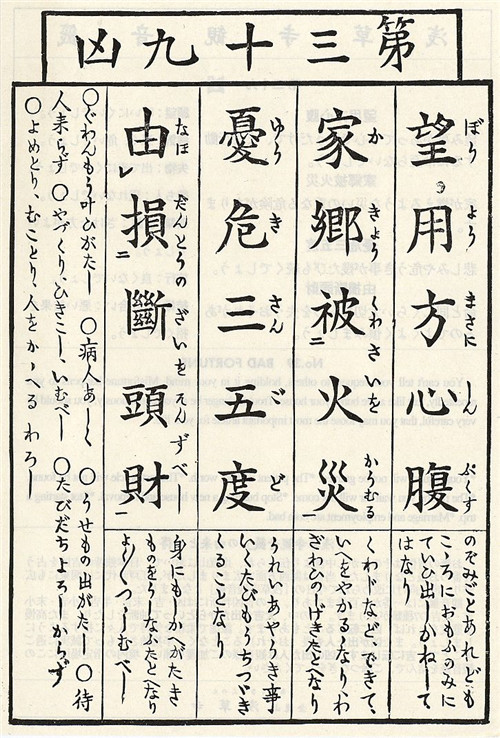 第三十九凶
望用方心腹
ぼう よう まさに しん ぷくす
のぞみごとあれども
こゝろにおもふのみに
ていひ出しかねして
はなり
家郷被二火災一
か きょう くわさいを かうむる
くわじなど、できて、
いへをやかるゝなり、わ
ざわひのしげきたとへなり
憂危三五度
ゆう き さん ご ど
うれいあやうき事
いくたびもうちつゞき
ることなり
由レ損二斷頭財一
なほ だんとうの ざいをそんずべし
身にもしかへがたき
ものをうしなふたとへなり
よく〱つゝしむべし
○ぐわんもう叶ひがたし ○病人あしく ○うせもの出がたし ○待
人来らず ○やづくり、ひきこし、いむべし ○たびだちよろしからず
○よめとり、むことり、人をかゝへるわろし